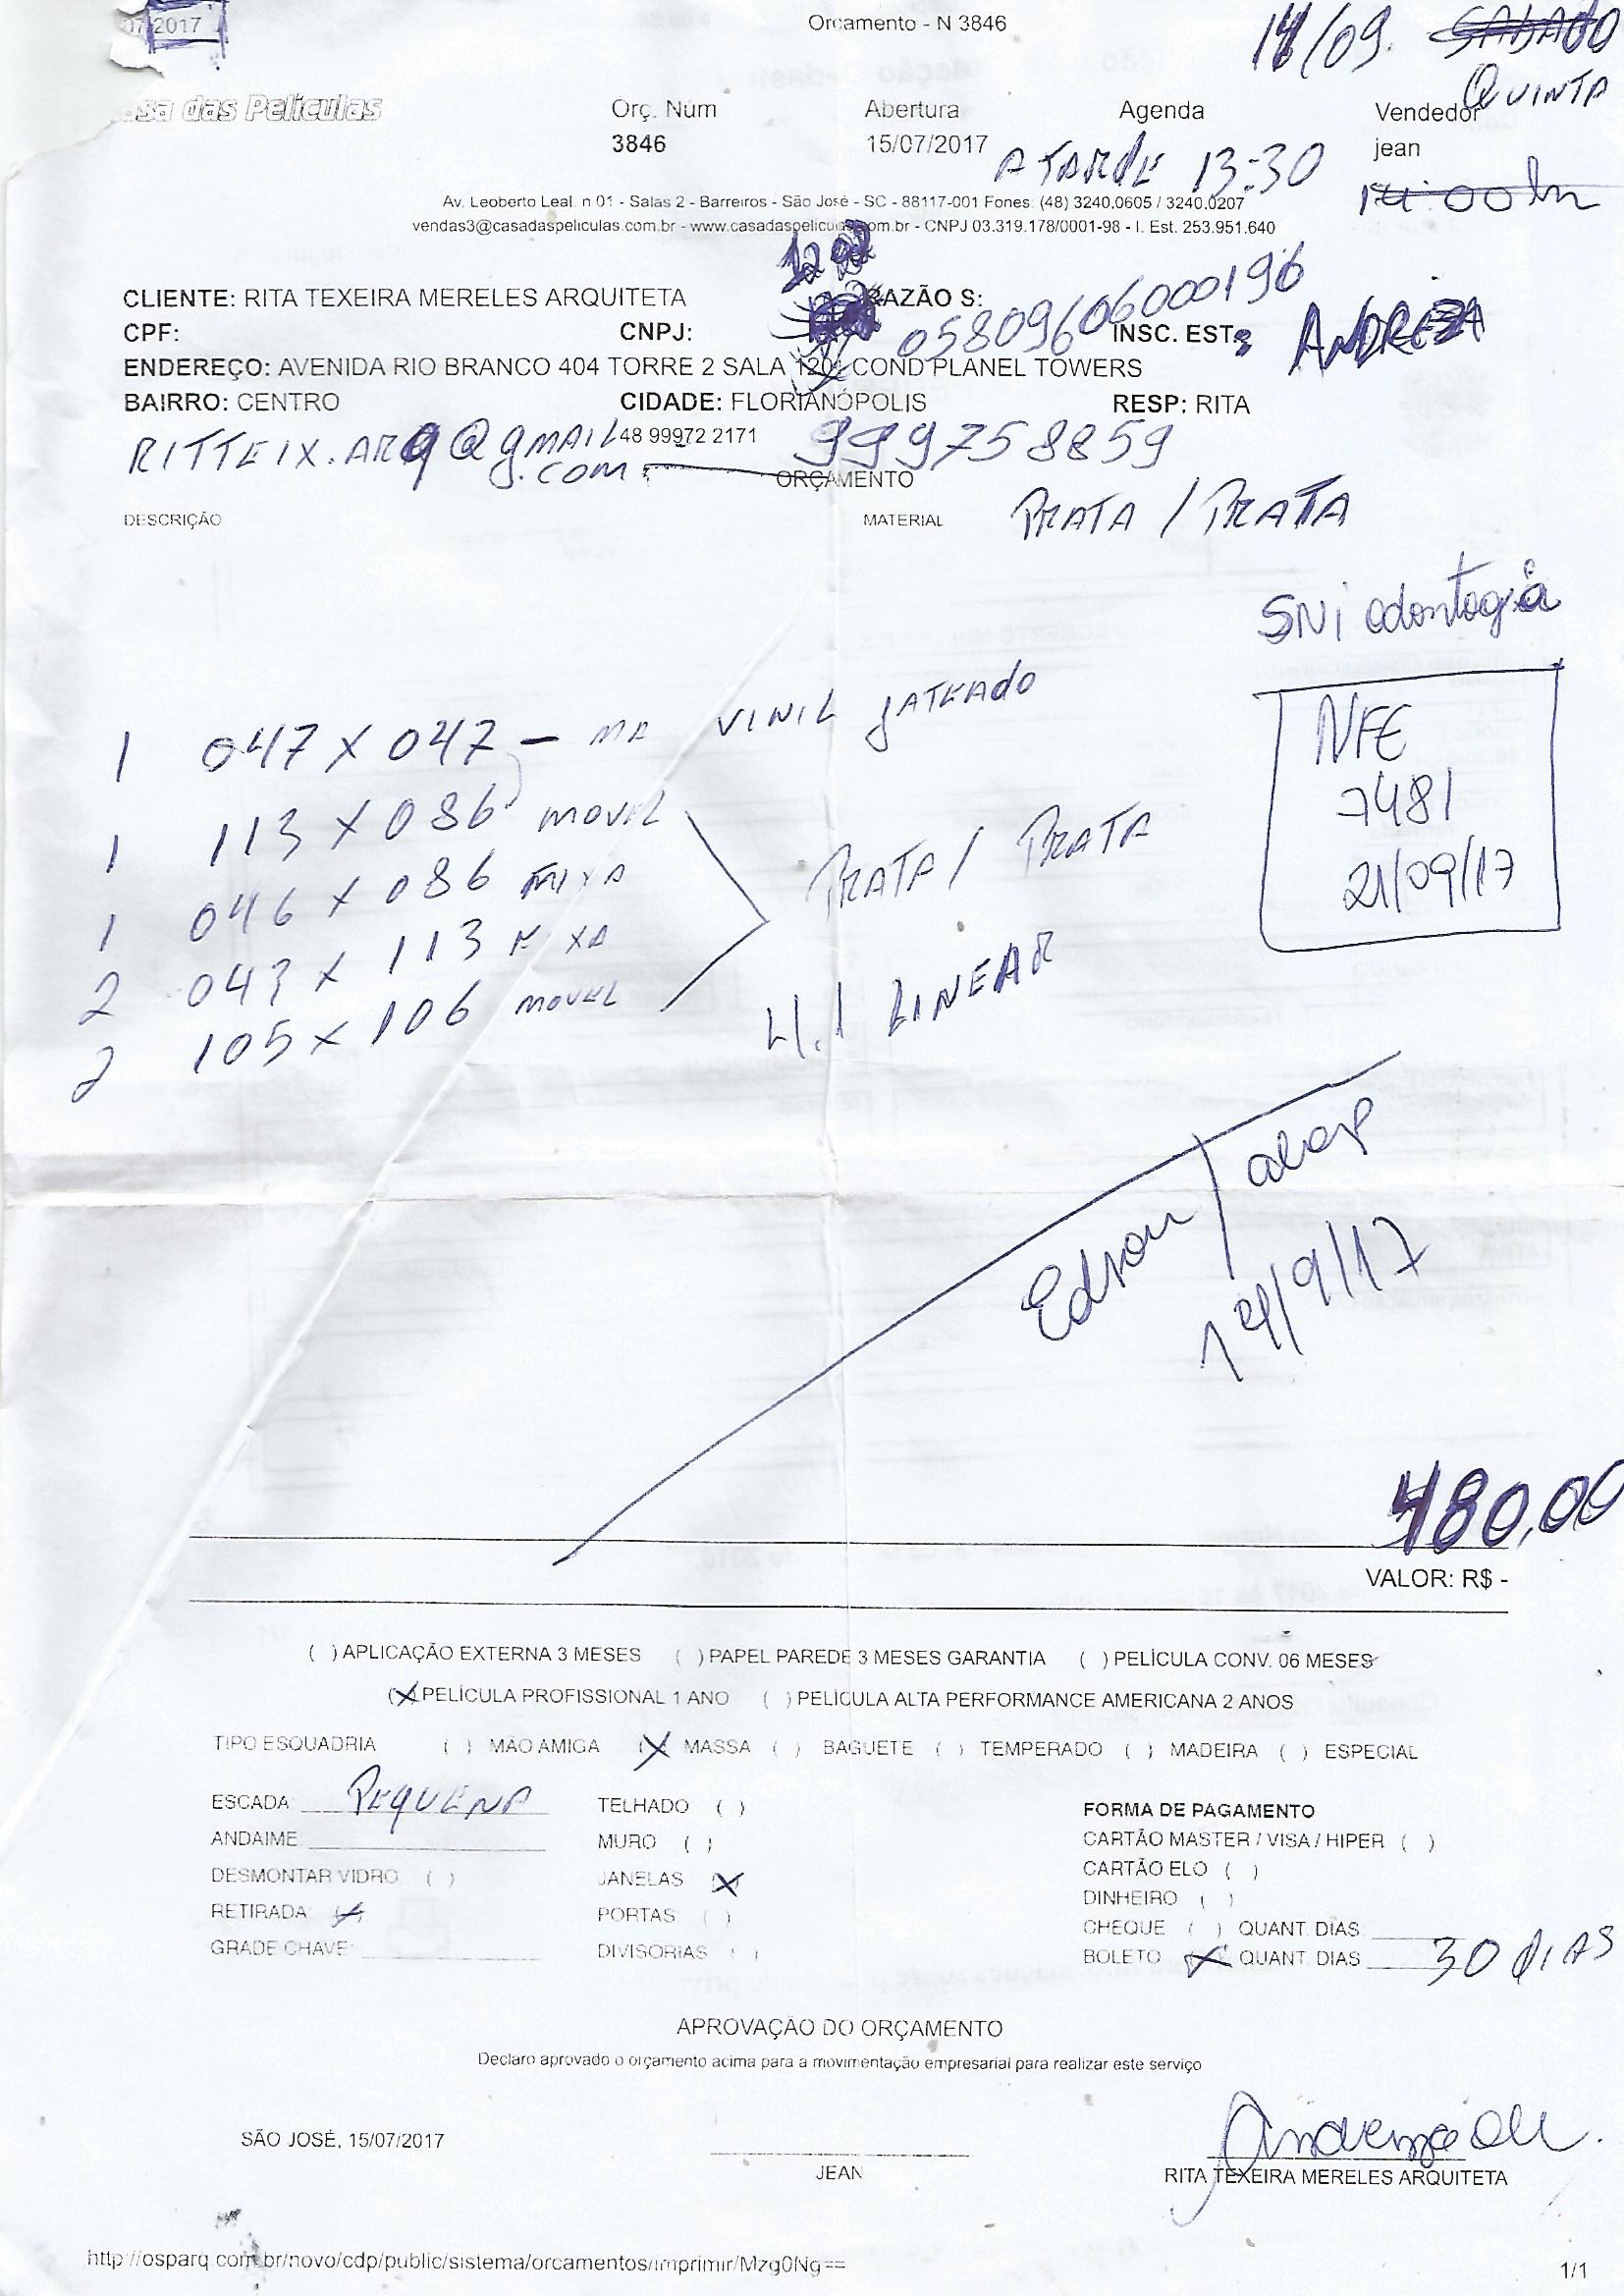 07/2017
Orçamento - N 3846
14/09. SABADO
QUINTA
asa das Películas
Orç. Núm Abertura Agenda Vendedor
3846 15/07/2017 jean
A TARDE 13:30
14:00hr
Av. Leoberto Leal. n 01 - Salas 2 - Barreiros - São José - SC - 88117-001 Fones: (48) 3240.0605 / 3240.0207
vendas3@casadaspeliculas.com.br - www.casadaspeliculas.com.br - CNPJ 03.319.178/0001-98 - I. Est. 253.951.640
CLIENTE: RITA TEXEIRA MERELES ARQUITETA RAZÃO S:
CPF: CNPJ: 05809606000196 INSC. EST: ANDREZA
ENDEREÇO: AVENIDA RIO BRANCO 404 TORRE 2 SALA COND PLANEL TOWERS
BAIRRO: CENTRO CIDADE: FLORIANÓPOLIS RESP: RITA
RITTEIX.ARQ@gMAIL 48 99972 2171 999758859
.COM
ORÇAMENTO
DESCRIÇÃO MATERIAL PRATA / PRATA
SNi odontogia
1 047 X 047 - VINIL JATEADO
NFE
7481
21/09/17
1 113 X 086 MOVEL
1 046 X 086 FAIXA
PRATA / PRATA
2 043 X 113 FIXA
2 105 X 106 MOVEL
4.1 LINEAR
Edson
14/9/17
480,00
VALOR: R$ -
( ) APLICAÇÃO EXTERNA 3 MESES ( ) PAPEL PAREDE 3 MESES GARANTIA ( ) PELÍCULA CONV. 06 MESES
(X) PELÍCULA PROFISSIONAL 1 ANO ( ) PELÍCULA ALTA PERFORMANCE AMERICANA 2 ANOS
TIPO ESQUADRIA ( ) MÃO AMIGA (X) MASSA ( ) BAGUETE ( ) TEMPERADO ( ) MADEIRA ( ) ESPECIAL
ESCADA: PEQUENA TELHADO ( ) FORMA DE PAGAMENTO
ANDAIME MURO ( ) CARTÃO MASTER / VISA / HIPER ( )
DESMONTAR VIDRO ( ) JANELAS (X) CARTÃO ELO ( )
DINHEIRO ( )
RETIRADA (X) PORTAS ( ) CHEQUE ( ) QUANT. DIAS
GRADE CHAVE: DIVISORIAS ( ) BOLETO (X) QUANT. DIAS 30 DIAS
APROVAÇÃO DO ORÇAMENTO
Declaro aprovado o orçamento acima para a movimentação empresarial para realizar este serviço
SÃO JOSÉ, 15/07/2017
JEAN RITA TEXEIRA MERELES ARQUITETA
http://osparq.com.br/novo/cdp/public/sistema/orcamentos/imprimir/Mzg0Ng==
1/1